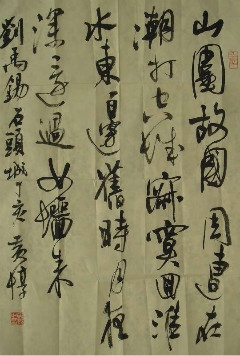 山圍故國周遭在
潮打空城寂寞回淮
水東邊舊時月夜
深還過女牆來
劉禹錫石頭城丁亥黃惇